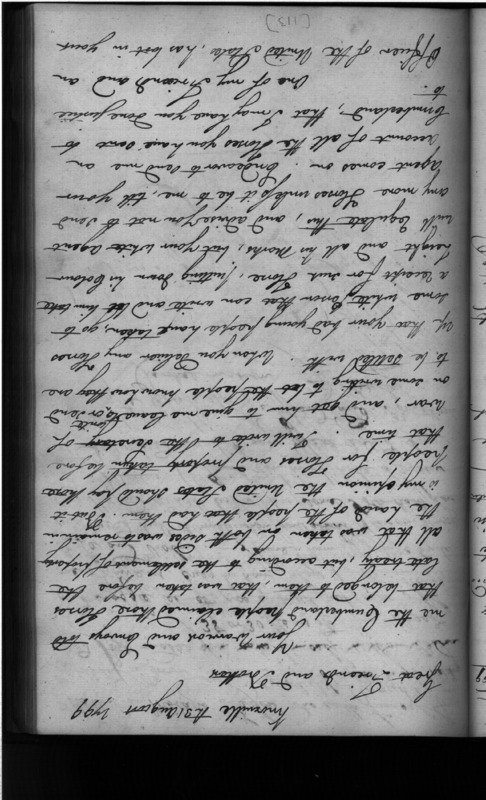 Knoxville 31 August 1799
Great Friends and Brother
Your Warrior and Envoys told
me the Cumberland People claimed those Horses
that belonged to them, that was taken before the
late treaty, but according to the settlement of property
all that was taken on both sides was to remain in
the hands of the people that had them. But it
is my opinion the United States should pay those
people for Horses and property taken before
that time. I will write to the secretary of
War, and get him to give me leave to, or send
on some writing to let the people know how they are
to be settled with. When you deliver any Horses
up, that your bad young people have taken, go to
some white person that can write and let him take
a receipt for such Horse, putting down his Colour
height and all his Marks, but your white agent
will regulate this, and advise you not to send
any more Horses unless it be to me, till your
agent comes on. Endeavor to send me an
account of all the Horses you have sent to
Cumberland, that I may have you done justice
to.
One of my Friends and an
Officer of the United States, has lost in your
[113]